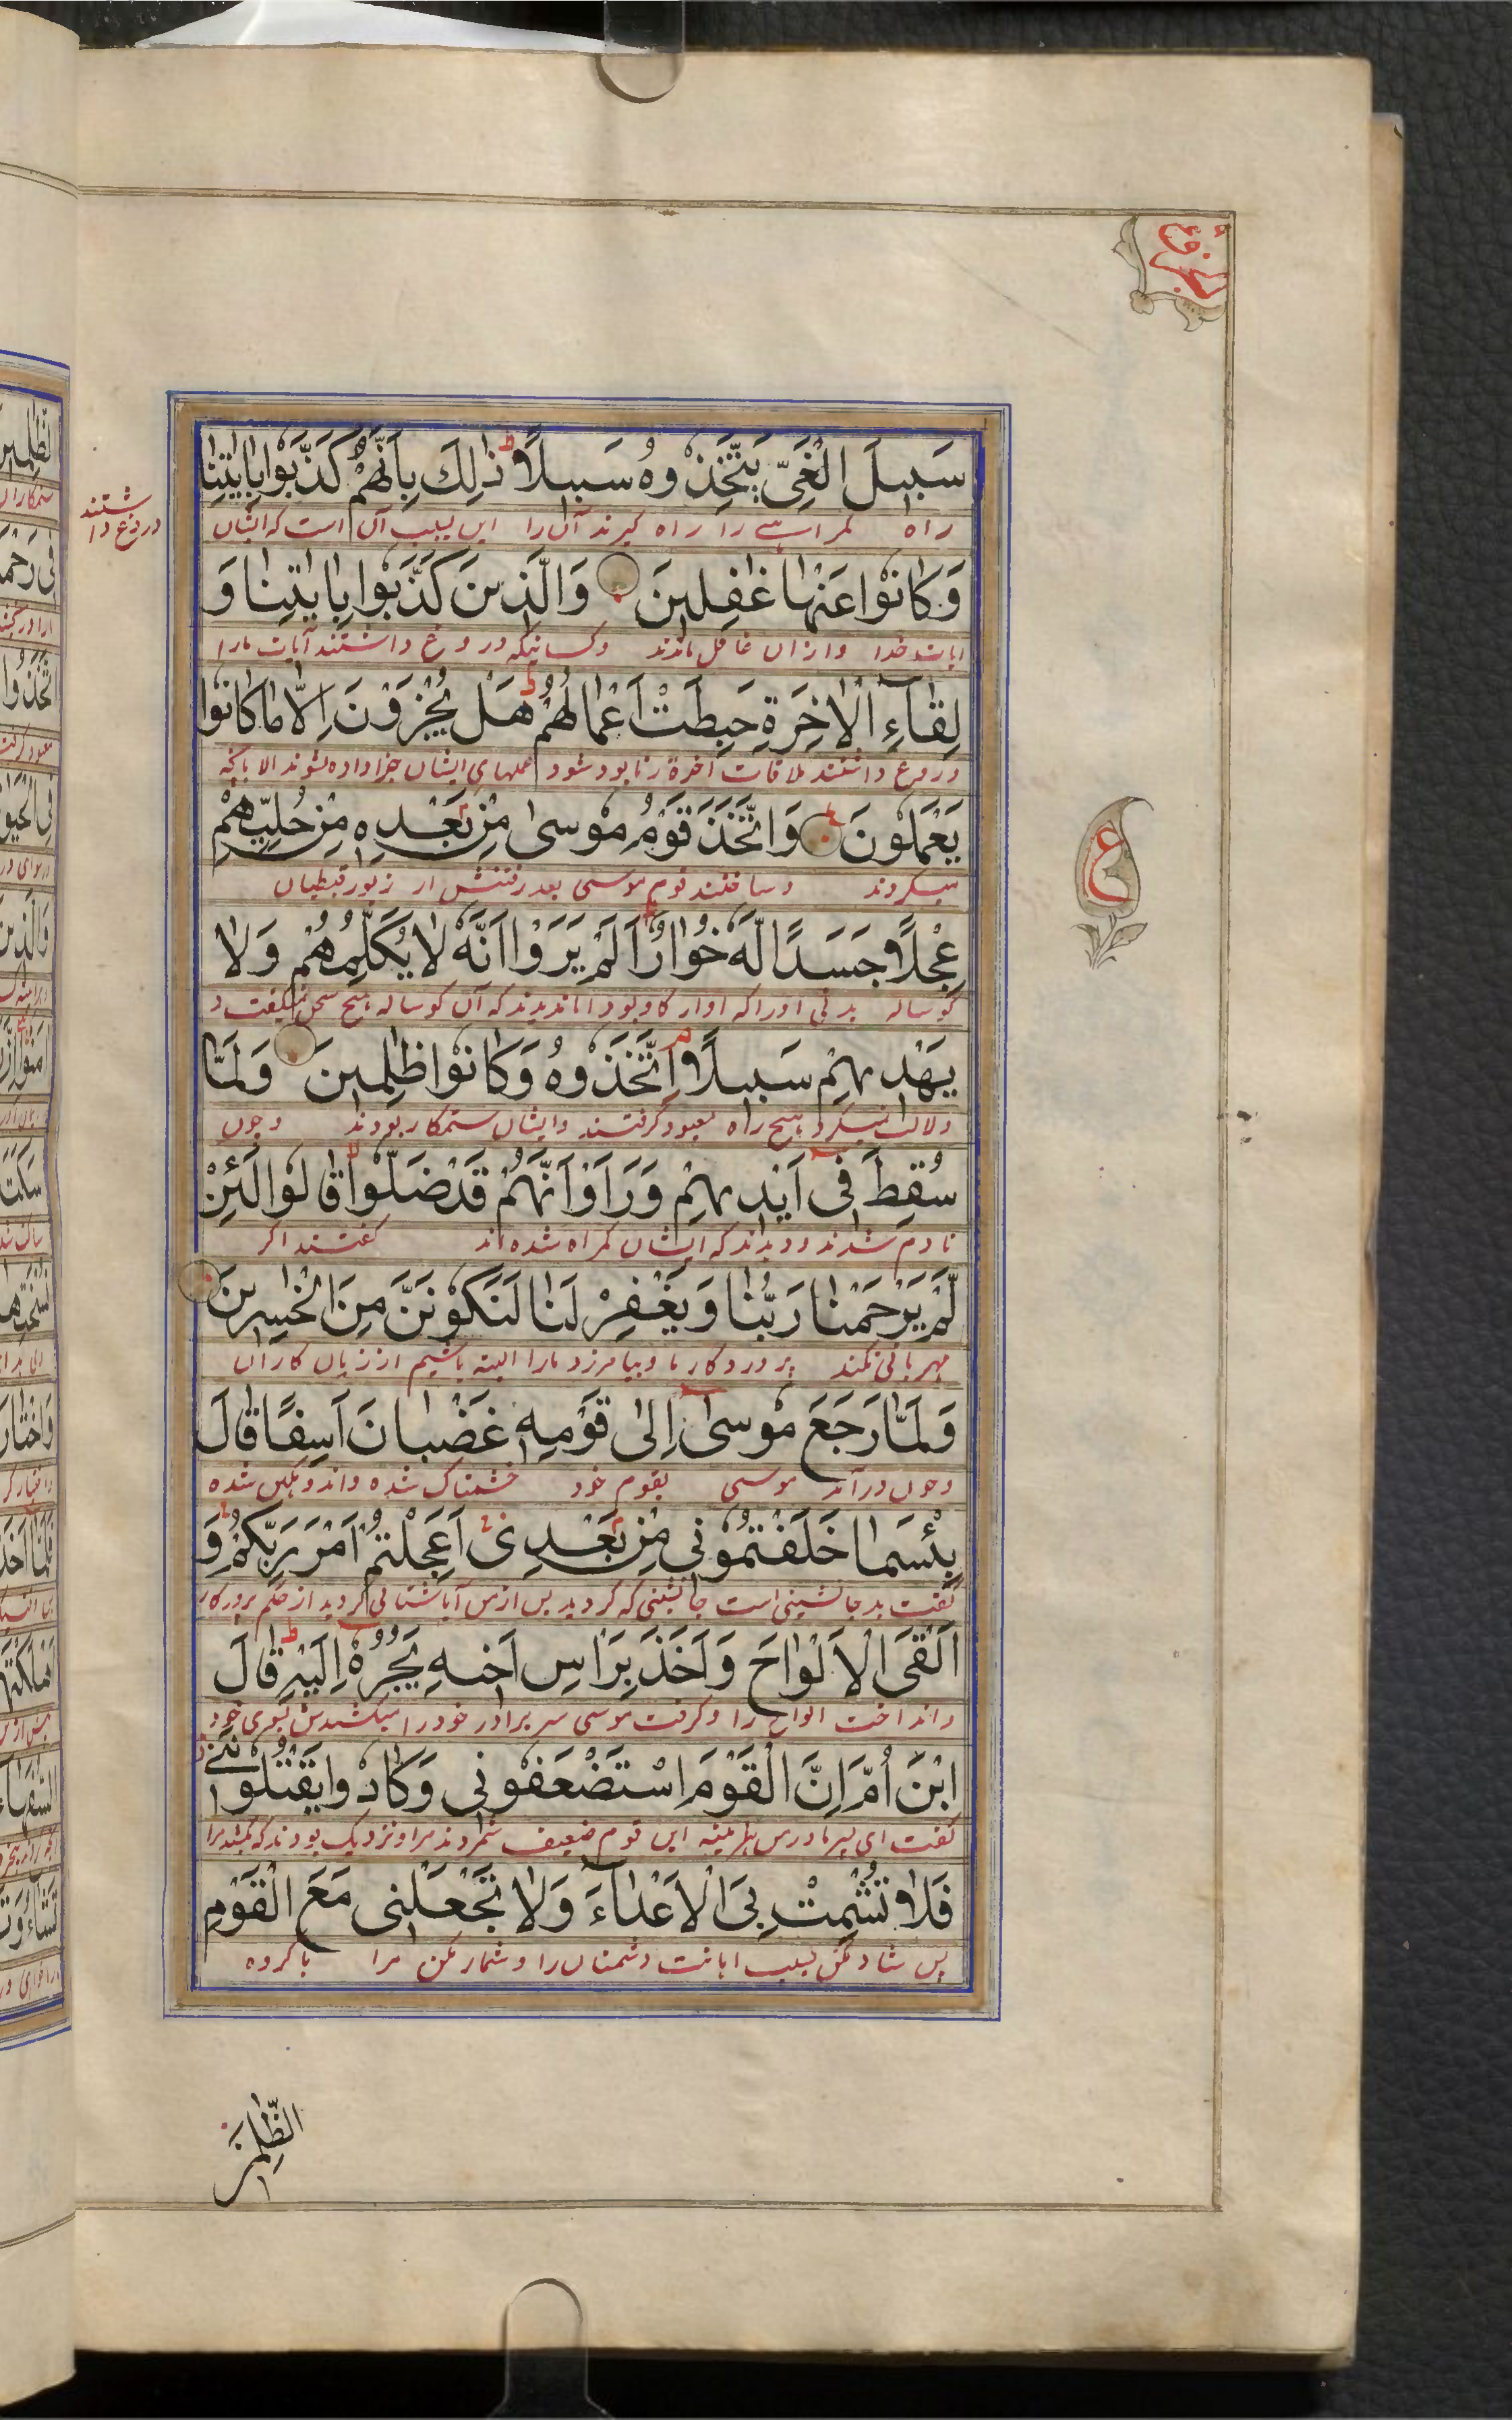 سَبِيلَ الْغَيِّ يَتَّخِذُوهُ سَبِيلًا ط ذٰلِكَ بِاَنَّهُمْ كَذَّبُوا بِاٰيٰتِنَا
راه گمراهی را راه گیرند آن را این بسبب آن است که ایشان
دروغ داشتند
وَكَانُوْا عَنْهَا غٰفِلِينَ وَالَّذِينَ كَذَّبُوا بِاٰيٰتِنَا وَ
ایات خدا وازان غافل ماندند وکسانیکه دروغ داشتند آیات مارا
لِقَآءِ الْاٰخِرَةِ حَبِطَتْ اَعْمَالُهُمْ ط هَلْ يُجْزَوْنَ اِلَّا مَا كَانُوْا
دروغ داشتند ملاقات آخرة را نابود شود عملهای ایشان جزا داده نشوند الا بانچه
يَعْمَلُونَ ع وَاتَّخَذَ قَوْمُ مُوسىٰ مِنْ بَعْدِهٖ مِنْ حُلِيِّهِمْ
میکردند وساختند قوم موسی بعد رفتنش از زیور قبطیان
ع
عِجْلًا جَسَدًا لَّهٗ خُوَارٌ اَلَمْ يَرَوْا اَنَّهٗ لَا يُكَلِّمُهُمْ وَلَا
گوساله بدنی اوراکه اواز گاو بود آیا ندیدند که آن گوساله هیچ سخن نمیگفت و
يَهْدِيهِمْ سَبِيلًا م اِتَّخَذُوهُ وَكَانُوْا ظٰلِمِينَ وَلَمَّا
دلالت نمیکرد هیچ راه معبود گرفتند وایشان ستمکار بودند وچون
سُقِطَ فِى اَيْدِيهِمْ وَرَاَوْا اَنَّهُمْ قَدْ ضَلُّوْا قَالُوْا لَئِنْ
نادم شدند ودیدند که ایشان گمراه شده اند گفتند اگر
لَّمْ يَرْحَمْنَا رَبُّنَا وَيَغْفِرْ لَنَا لَنَكُوْنَنَّ مِنَ الْخٰسِرِينَ
مهربانی نکند پروردگار ما وبیامرزد مارا البته باشیم از زیان کاران
وَلَمَّا رَجَعَ مُوسىٰ اِلىٰ قَوْمِهٖ غَضْبَانَ اَسِفًا قَالَ
وچون درآمد موسی بقوم خود خشمناک شده واندوهگین شده
بِئْسَمَا خَلَفْتُمُوْنِى مِنْ بَعْدِى اَعَجِلْتُمْ اَمْرَ رَبِّكُمْ وَ
گفت بد جانشینی است جانشینی که کردید پس ازمن آیا شتابی کردید از حکم پروردگار
اَلْقَى الْاَلْوَاحَ وَاَخَذَ بِرَاْسِ اَخِيهِ يَجُرُّهٗ اِلَيْهِ ط قَالَ
وانداخت الواح را وگرفت موسی سر برادر خود را میکشیدش بسوی خود
ابْنَ اُمَّ اِنَّ الْقَوْمَ اسْتَضْعَفُوْنِى وَكَادُوا يَقْتُلُوْنَنِى
گفت ای پسر مادر من هرآینه این قوم ضعیف شمردند مرا ونزدیک بودند که بکشند مرا
فَلَا تُشْمِتْ بِىَ الْاَعْدَآءَ وَلَا تَجْعَلْنِى مَعَ الْقَوْمِ
پس شاد مکن بسبب اهانت دشمنان را وشمار مکن مرا باگروه
الظّٰلِمِينَ